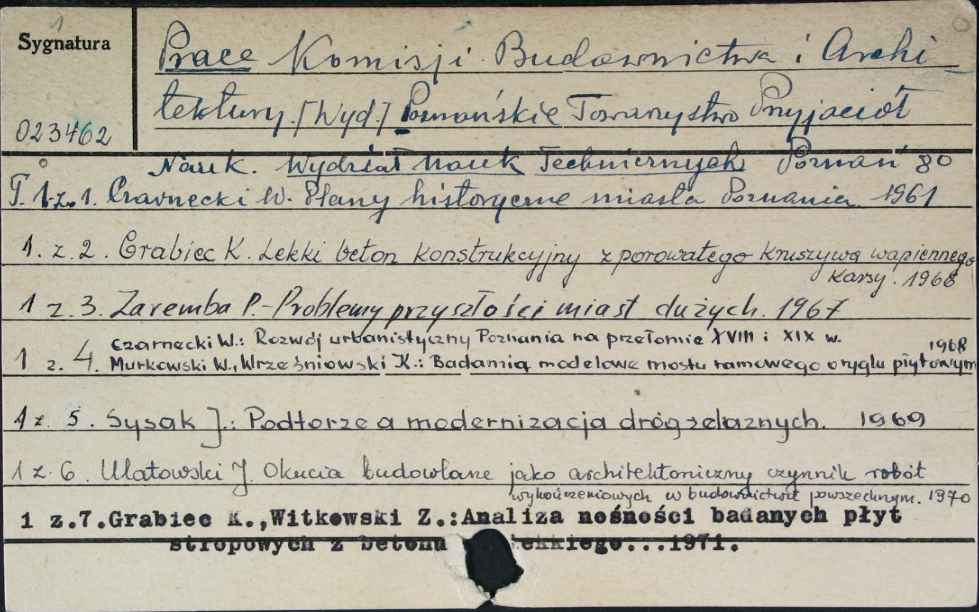 1
Sygnatura
023462
Prace Komisji Budownictwa i Archi-
tektury. [Wyd.] Poznańskie Towarzystwo Przyjaciół
Nauk. Wydział Nauk Technicznych Poznań 8°
T. 1. z. 1. Czarnecki W. Plany historyczne miasta Poznania. 1961
1. z. 2. Grabiec K. Lekki beton konstrukcyjny z porowatego kruszywa wapiennego
Karsy. 1968
1 z. 3. Zaremba P. - Problemy przyszłości miast dużych. 1967
Czarnecki W.: Rozwój urbanistyczny Poznania na przełomie XVIII i XIX w.
1 z. 4. Murkowski W., Wrześniowski K.: Badania modelowe mostu ramowego o ryglu płytowym 1968
1 z. 5. Sysak J.: Podtorze a modernizacja dróg żelaznych. 1969
1 z. 6. Ulatowski J. Okucia budowlane jako architektoniczny czynnik robót
wykończeniowych w budownictwie powszechnym. 1970
1 z.7.Grabiec K.,Witkowski Z.:Analiza nośności badanych płyt
stropowych z betonu lekkiego...1971.